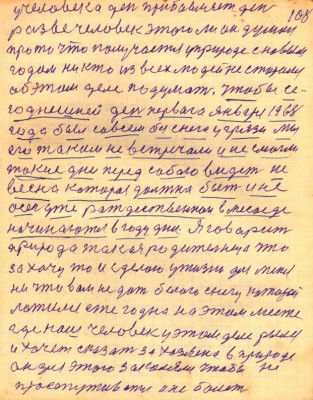 человека деп прибавляет деп
108
разве человек этого не он думал
про то что получается у природе с новым
годом никто из всех людей не старался
об этом деле подумат, чтобы се-
годнешней ден первага января 1968
года был совсем би снегу и грязи мы
его таким не встречали и не смогли
такие дни перед собою видет не
весна которая должна быт и не
осен уже рождественском мясаеде
начинаются в году дни. Я говорит
природа такая родителница что
захочу то и сделаю у жизни для меня
ни что вам не дат белого снегу, которой
лежит сегодна на этом месте
где наш человек у этом деле
и хочет сказат за хазяена в природе
он для этого закалён чтобы не
простуживатся и не болет